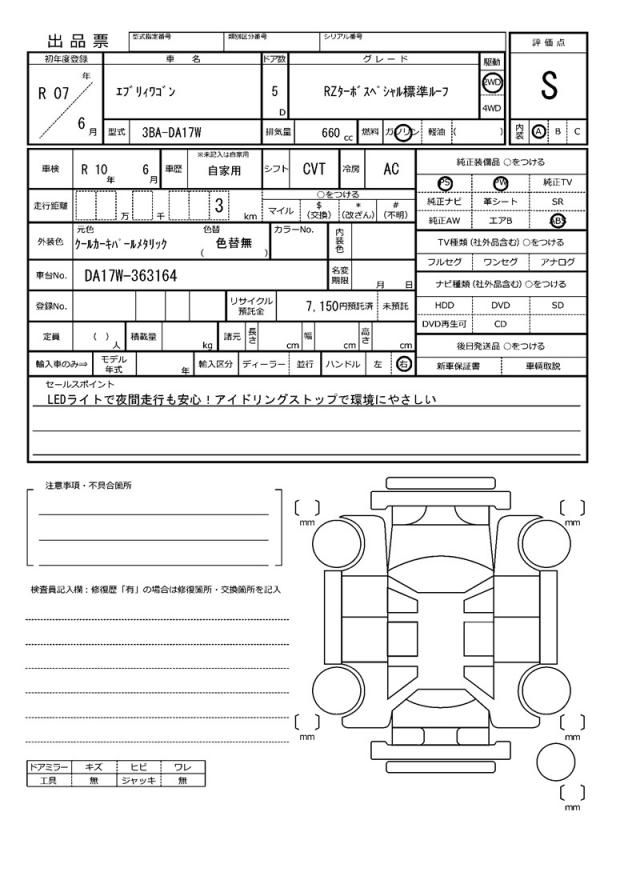 出品票
型式指定番号 類別区分番号 シリアル番号
初年度登録 車名 ドア数 グレード 駆動 評価点
R 07 年 6 月 ｴﾌﾞﾘｨﾜｺﾞﾝ 5 D RZﾀｰﾎﾞｽﾍﾟｼｬﾙ標準ルーフ 2WD 4WD S
型式 3BA-DA17W 排気量 660 cc 燃料 ガソリン 軽油 ( ) 内装 A B C
車検 R 10 年 6 月 車歴 ※未記入は自家用 自家用 シフト CVT 冷房 AC
走行距離 万 千 3 km ○をつける マイル $ (交換) * (改ざん) # (不明)
外装色 元色 ｸｰﾙｶｰｷﾊﾟｰﾙメタリック 色替 ( 色替無 ) カラーNo. 内装色
車台No. DA17W-363164 名変期限 月 日
登録No. リサイクル預託金 7,150円預託済 未預託
定員 ( ) 人 積載量 kg 諸元 長さ cm 幅 cm 高さ cm
輸入車のみ⇒ モデル年式 年 輸入区分 ディーラー 並行 ハンドル 左 右
純正装備品 ○をつける
PS PW 純正TV
純正ナビ 革シート SR
純正AW エアB ABS
TV種類(社外品含む)○をつける
フルセグ ワンセグ アナログ
ナビ種類(社外品含む)○をつける
HDD DVD SD
DVD再生可 CD
後日発送品 ○をつける
新車保証書 車輌取説
セールスポイント
LEDライトで夜間走行も安心！アイドリングストップで環境にやさしい
注意事項・不具合箇所
検査員記入欄：修復歴「有」の場合は修復箇所・交換箇所を記入
[ ] mm
[ ] mm
[ ] mm
[ ] mm
[ ] mm
ドアミラー キズ ヒビ ワレ
工具 無 ジャッキ 無